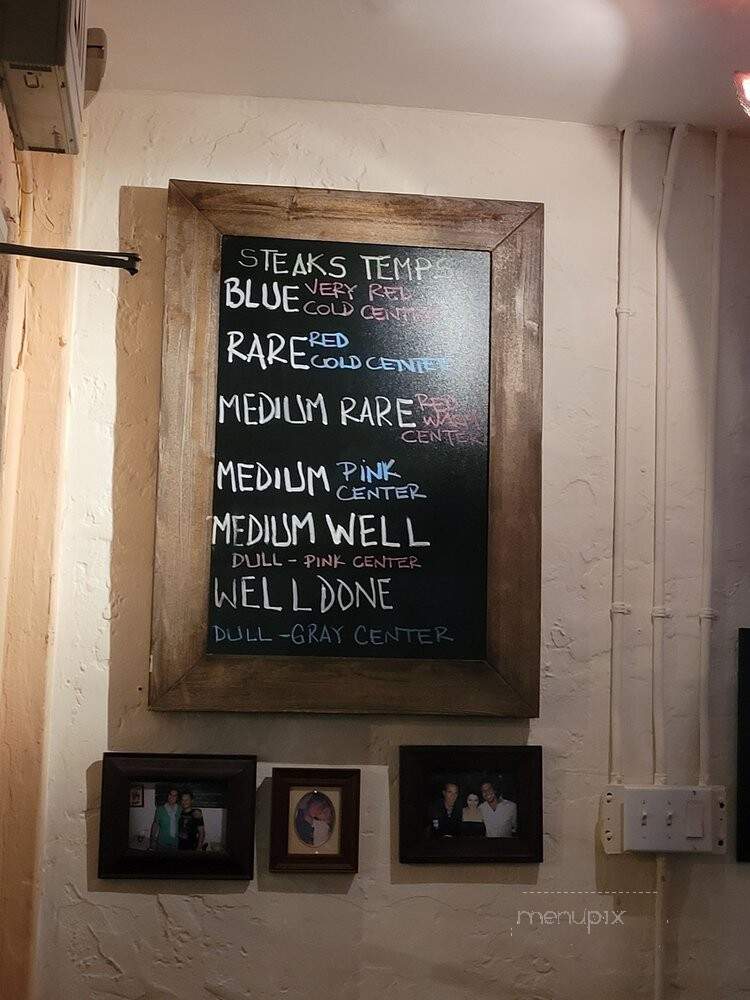 STEAKS TEMPS
BLUE VERY RED
COLD CENTER
RARE RED
COLD CENTER
MEDIUM RARE RED
WARM
CENTER
MEDIUM PINK
CENTER
MEDIUM WELL
DULL - PINK CENTER
WELL DONE
DULL - GRAY CENTER
menupix